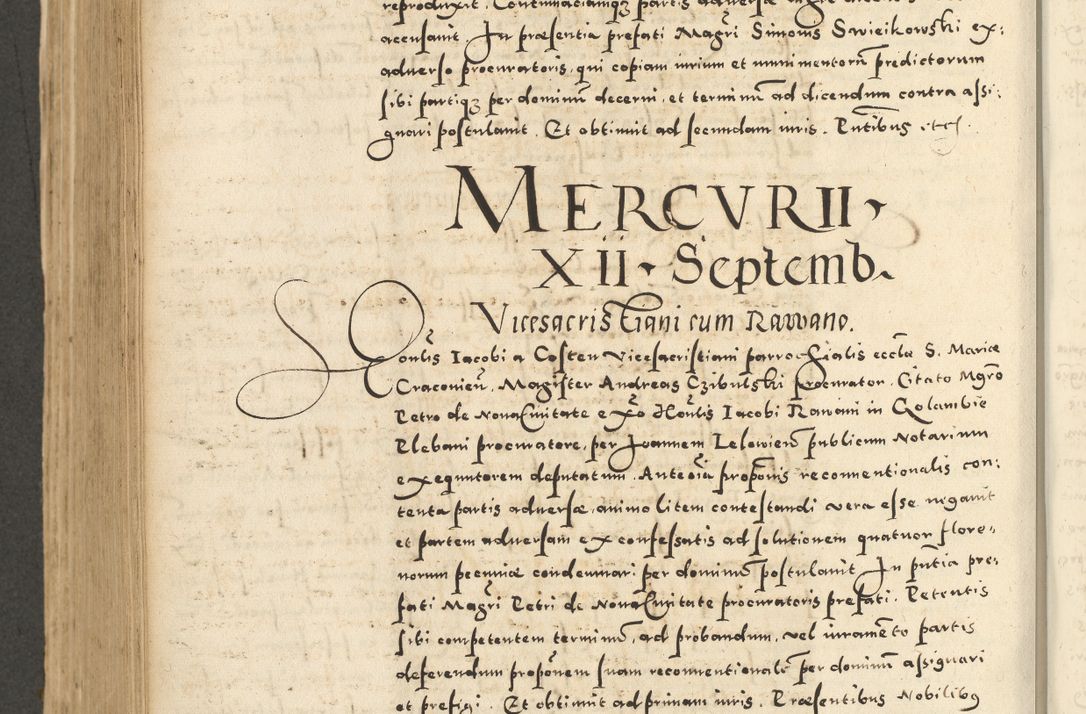 reproduxit. Contumaciamqꝫ partis adversæ
accusavit. In præsentia prefati Magrĩ Simonis Swieikowski ex-
adverso procuratoris, qui copiam iurium et munimentorũ predictorum
sibi partiqꝫ per dominũ decerni, et terminũ ad dicendum contra assi-
gnari postulavit. Et obtinuit ad secundam iuris. Pñtibus etc.
MERCVRII
XII Septemb.
Vicesacristiani cum Rawano.
Honlis Iacobi a Costen Vicesacristiani parrochialis ecclæ S. Mariæ
Cracovien̄. Magister Andreas Czibulski procurator. Citato Mgro
Petro de Nova Civitate ex̃o Honlis Iacobi Rawani in Golambie
Plebani procuratore, per Ioannem Lelowien̄ publicum Notarium
exequutorem deputatum. Ante oĩa propõnis reconventionalis con-
tenta partis adversæ, animo litem contestandi vera esse negavit
et partem adversam ex confessatis ad solutionem quatuor flore-
norum pecuniæ condemnari per dominũ postulavit. In pñtia pre-
fati Magrĩ Petri de Nova Civitate procuratoris prefati. Petentis
sibi competentem terminũ, ad probandum, vel iuramẽto partis
deferendum propõnem suam reconventionalẽ per dominũ assignari
et prefigi. Et obtinuit ad primam iuris. Præsentibus Nobilibꝯ